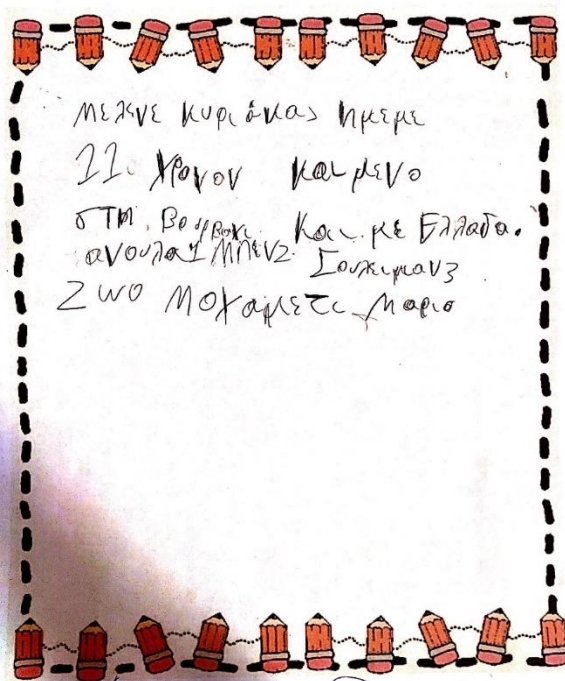 Μελνε κυριάκας ημεμε
11. χρονον και μενο
στη. Βουρβαχι. και. με Ελλαδα.
ανουλα1 Μπεν2 Σουλειμαν3
Ζωο Μοχαμετι Μαριο